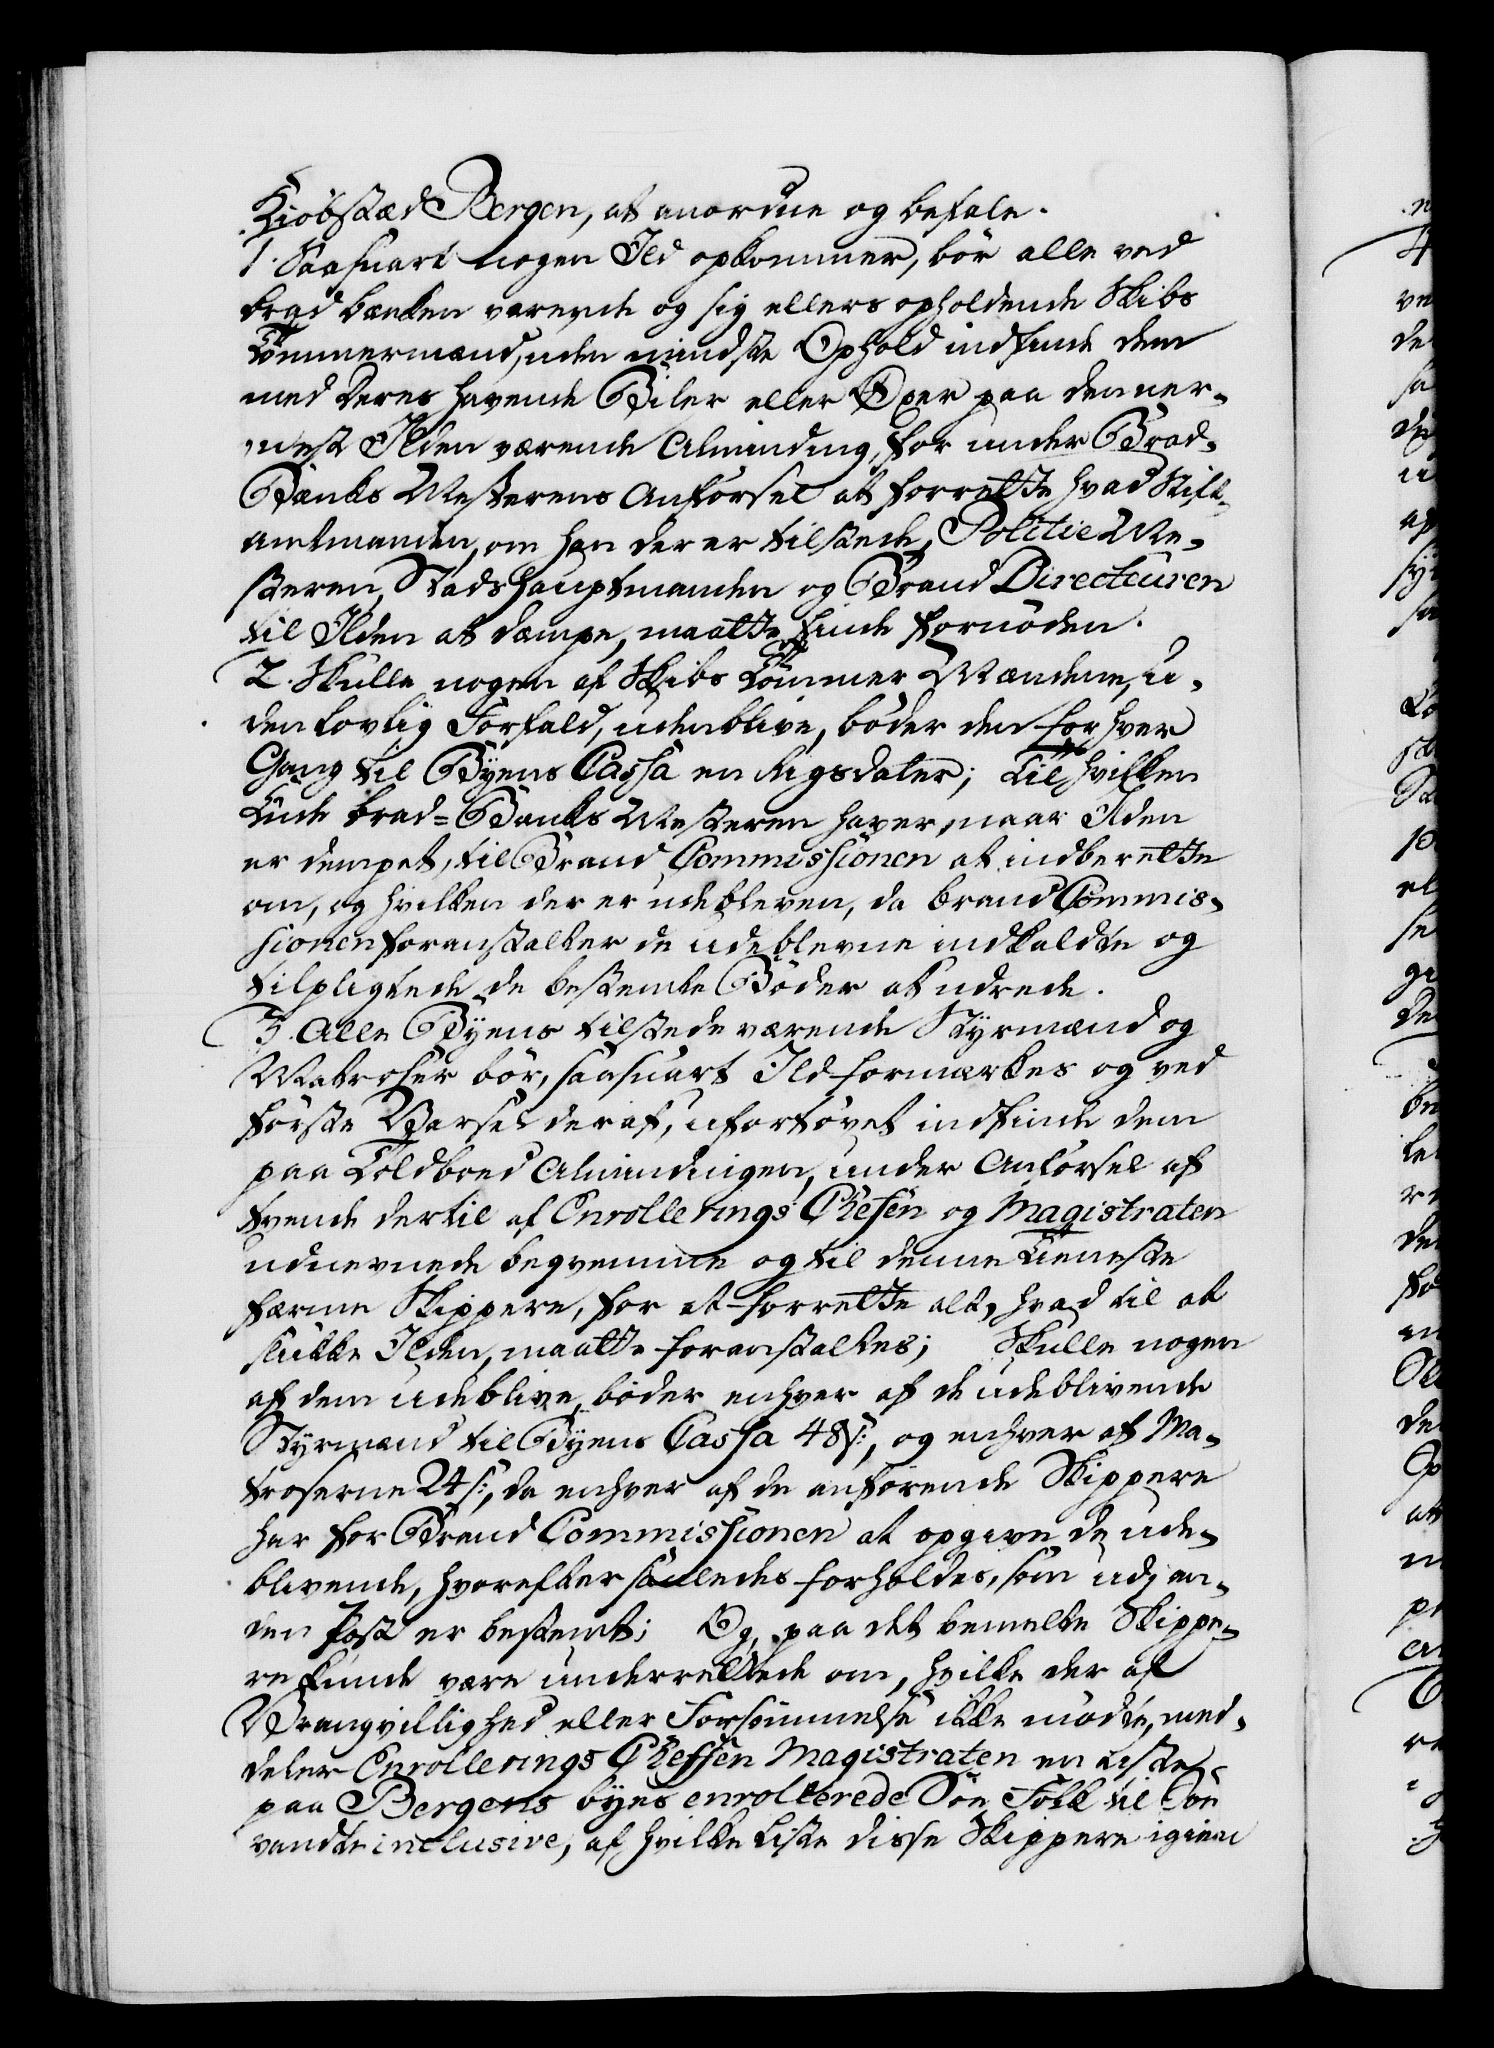 Kiöbstæd Bergen, at anordne og befale.
1. Saasnart nogen Ild opkommer, bör alle ved
brad bænken værende og sig ellers opholdende Skibs
Tömmermænd, uden mindste Ophold indfinde dem
med deres havende Biler eller Öxer paa den ner-
mest Ilden værende Alminding, for under Brad-
Bænks Mesterens Anförsel at forrette hvad Stift-
amtmanden, om han der er tilstede, Politie Me-
steren, Stads Hauptmanden og Brand Directeuren
til Ilden at dæmpe, maatte finde fornöden.
2. Skulle nogen af Skibs Tömmer Mændene, u-
den lovlig Forfald, udenblive, böder den for hver
Gang til Byens Cassa en Rigsdaler; Til hvilken
Ende brad=Bænks Mesteren haver, naar Ilden
er dempet, til Brand Commissionen at indberette
om, og hvilken der er udebleven, da brand Commis-
sionen foranstalter de udeblevne indkaldte og
tilpligtede de bestemte Böder at udrede.
3. Alle Byens tilstedeværende Styrmænd og
Matroser bör, saasnart Ild formærkes og ved
förste Varsel deraf, ufortövet indfinde dem
paa Toldboed Almindingen, under Anförsel af
tvende dertil af Enrollerings Chefen og Magistraten
udnevnede beqvemme og til denne Tieneste
færme Skippere, for at forrette alt, hvad til at
slukke Ilden, maatte foranstaltes; Skulle nogen
af dem udeblive, böder enhver af de udeblivende
Styrmænd til Byens Cassa 48 s:, og enhver af Ma-
troserne 24 s:, da enhver af de anförende Skippere
har for Brand Commissionen at opgive de ude-
blivende, hvorefter saaledes forholdes, som udj an-
den Post er bestemt; Og, paa det bemelte Skippe-
re kunde være underrettede om, hvilke der af
Vrangvillighed eller Forsömmelse ikke mödte, med-
deler Enrollerings Cheffen Magistraten en Liste
paa Bergens byes enrollerede Söe Folk til Söe
vandte inclusive, af hvilke Liste disse Skippere igien